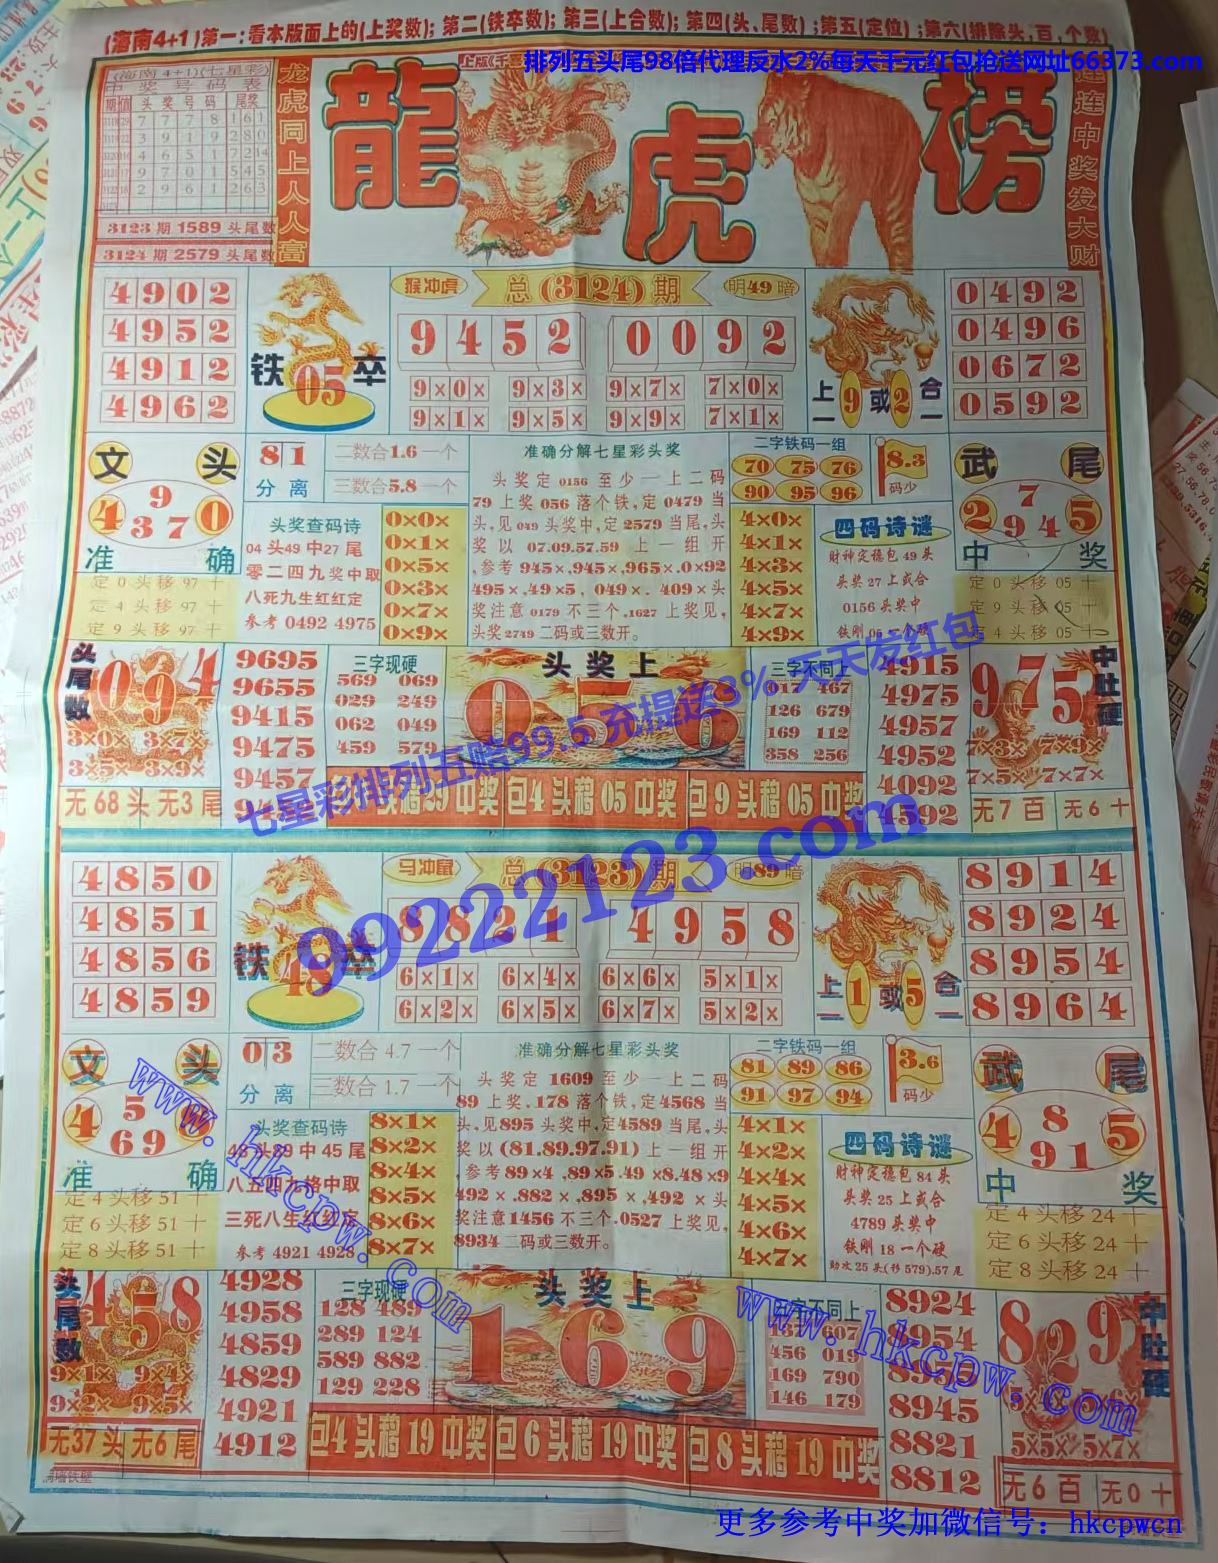 (海南4+1)第一:看本版面上的(上奖数);第二(铁卒数);第三(上合数);第四(头、尾数);第五(定位);第六(排除头,百,个数)
排列五头尾98倍代理反水2%每天千元红包抢送网址66373.com
(海南4+1)(七星彩)
龙虎同上人人富
龍虎榜
连连中奖发大财
3123期 1589 头尾数
3124期 2579 头尾数
猴冲虎
总(3124)期
明49暗
4902
4952
4912
4962
铁05卒
9452 0092
9×0× 9×3× 9×7× 7×0×
9×1× 9×5× 9×9× 7×1×
上一9或2合一
0492
0496
0672
0592
文头
9
4370
准确
定0头移97十
定4头移97十
定9头移97十
8 1
分离
二数合1.6一个
三数合5.8一个
头奖查码诗
04头49中27尾
零二四九奖中取
八死九生红红定
参考 0492 4975
0×0×
0×1×
0×5×
0×3×
0×7×
0×9×
准确分解七星彩头奖
头奖定0156至少一上二码
79上奖056落个铁,定0479当
头,见049头奖中,定2579当尾,头
奖以 07.09.57.59 上一组开
,参考 945×,945×,965×,0×92
495×,49×5,049×,409×头
奖注意0179不三个,1627上奖见,
头奖2749二码或三数开。
二字铁码一组
70 75 76
90 95 96
8.3
码少
4×0×
4×1×
4×3×
4×5×
4×7×
4×9×
四码诗谜
财神定稳包49头
头奖27上或合
0156头奖中
铁刚06一个硬
武尾
7
2945
中奖
定0头移05十
定9头移05十
定4头移05十
头尾数
094
3×0× 3×7×
3×5× 3×9×
无68头无3尾
9695
9655
9415
9475
9457
三字现硬
569 069
029 249
062 049
459 579
头奖上
056
三字不同上
017 467
126 679
169 112
358 256
4915
4975
4957
4952
4092
4592
975
中肚硬
7×3× 7×9×
7×5× 7×7×
无7百 无6十
中奖包4头稳05中奖包9头稳05中奖
七星彩排列五赔99.5充提送3%天天发红包
99222123.com
马冲鼠
总(3123)期
明89暗
4850
4851
4856
4859
铁48卒
8824 4958
6×1× 6×4× 6×6× 5×1×
6×2× 6×5× 6×7× 5×2×
上一1或5合一
8914
8924
8954
8964
文头
5
准确
定4头移51十
定6头移51十
定8头移51十
0 3
分离
二数合4.7一个
三数合1.7一个
头奖查码诗
48头89中45尾
八五四九格中取
三死八生红红定
参考 4921 4928
8×1×
8×2×
8×4×
8×5×
8×6×
8×7×
准确分解七星彩头奖
头奖定1609至少一上二码
89上奖,178落个铁,定4568当
头,见895头奖中,定4589当尾,头
奖以(81.89.97.91)上一组开
参考89×4,89×5,49×8,48×9
492×,882×,895×,492×头
奖注意1456不三个,0527上奖见,
8934二码或三数开。
二字铁码一组
81 89 86
91 97 94
3.6
码少
4×1×
4×2×
4×4×
4×5×
4×6×
4×7×
四码诗谜
财神定稳包84头
头奖25上或合
4789头奖中
铁刚18一个硬
助攻25头(移579).57尾
武尾
8
4915
中奖
定4头移24十
定6头移24十
定8头移24十
头尾数
458
9×1× 9×4×
9×2× 9×5×
无37头无6尾
4928
4958
4859
4829
4921
4912
三字现硬
128 489
289 124
589 882
129 228
头奖上
169
三字不同上
467 607
456 019
169 790
146 179
8924
8954
8945
8821
8812
829
中肚硬
5×5× 5×7×
无6百 无0十
包4头稳19中奖包6头稳19中奖包8头稳19中奖
www.hkcpw.com
www.hkcpw.com
更多参考中奖加微信号: hkcpwcn